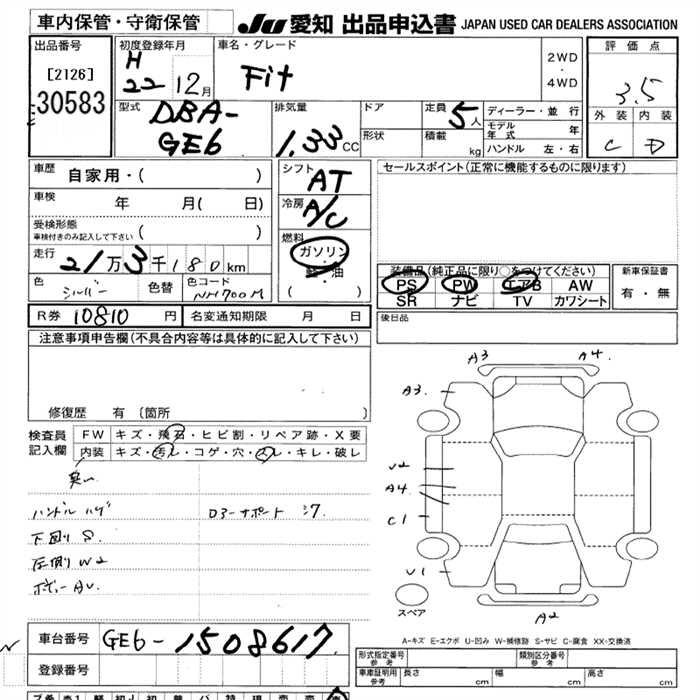 車内保管・守衛保管
JU 愛知 出品申込書 JAPAN USED CAR DEALERS ASSOCIATION
出品番号
[2126]
30583
初度登録年月
H
22 12月
車名・グレード
Fit
2WD
・
4WD
評価点
3.5
外装 内装
C D
型式
DBA-
GE6
排気量
1.33 CC
ドア
形状
定員 5人
積載 kg
ディーラー・並行
モデル年式 年
ハンドル 左・右
車歴
自家用・( )
車検 年 月( 日)
受検形態
車検付きのみ記入して下さい ( )
走行
21万3千180km
色 シルバー
色替
色コード NH700M
シフト
AT
冷房
A/C
燃料
ガソリン
軽・油
( )
セールスポイント(正常に機能するものに限ります)
装備品(純正品に限り○をつけてください)
PS PW エアB AW
SR ナビ TV カワシート
新車保証書
有・無
R券 10810 円
名変通知期限 月 日
後日品
注意事項申告欄(不具合内容等は具体的に記入して下さい)
修復歴 有 〔箇所 〕
検査員
記入欄
FW キズ・飛石・ヒビ割・リペア跡・X要
内装 キズ・汚レ・コゲ・穴・スレ・キレ・破レ
ハンドル ハゲ
下回り S.
左側 W2
A3 A4
A3
A4
C1
U1
A2
スペア
A-キズ E-エクボ U-凹み W-補修跡 S-サビ C-腐食 XX-交換済
車台番号 GE6-1508617
登録番号
形式指定番号
参考
類別区分番号
参考
車庫証明用
参考
長さ cm
幅 cm
高さ cm